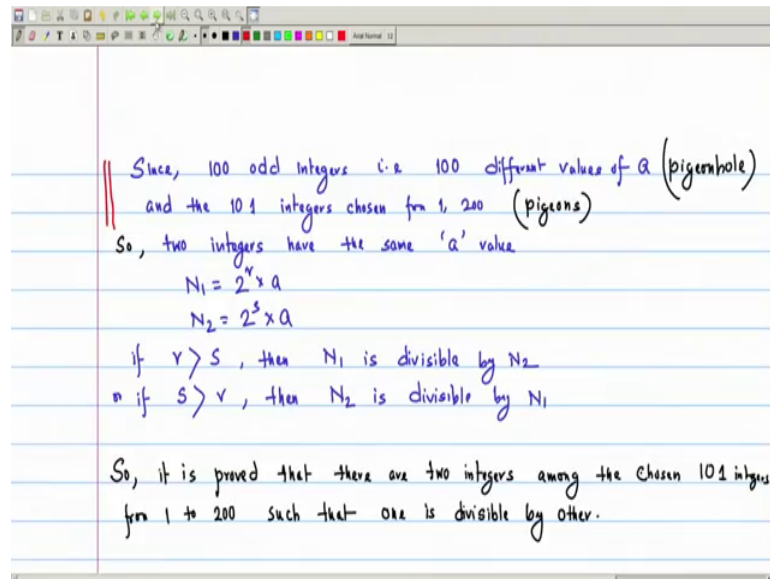 Arial Normal 12
Since, 100 odd integers i.e 100 different values of a (pigeonhole)
and the 101 integers chosen from 1, 200 (pigeons)
So, two integers have the same 'a' value
N₁ = 2ʳ x a
N₂ = 2ˢ x a
if r > s, then N₁ is divisible by N₂
or if s > r, then N₂ is divisible by N₁
So, it is proved that there are two integers among the chosen 101 integers
from 1 to 200 such that one is divisible by other.